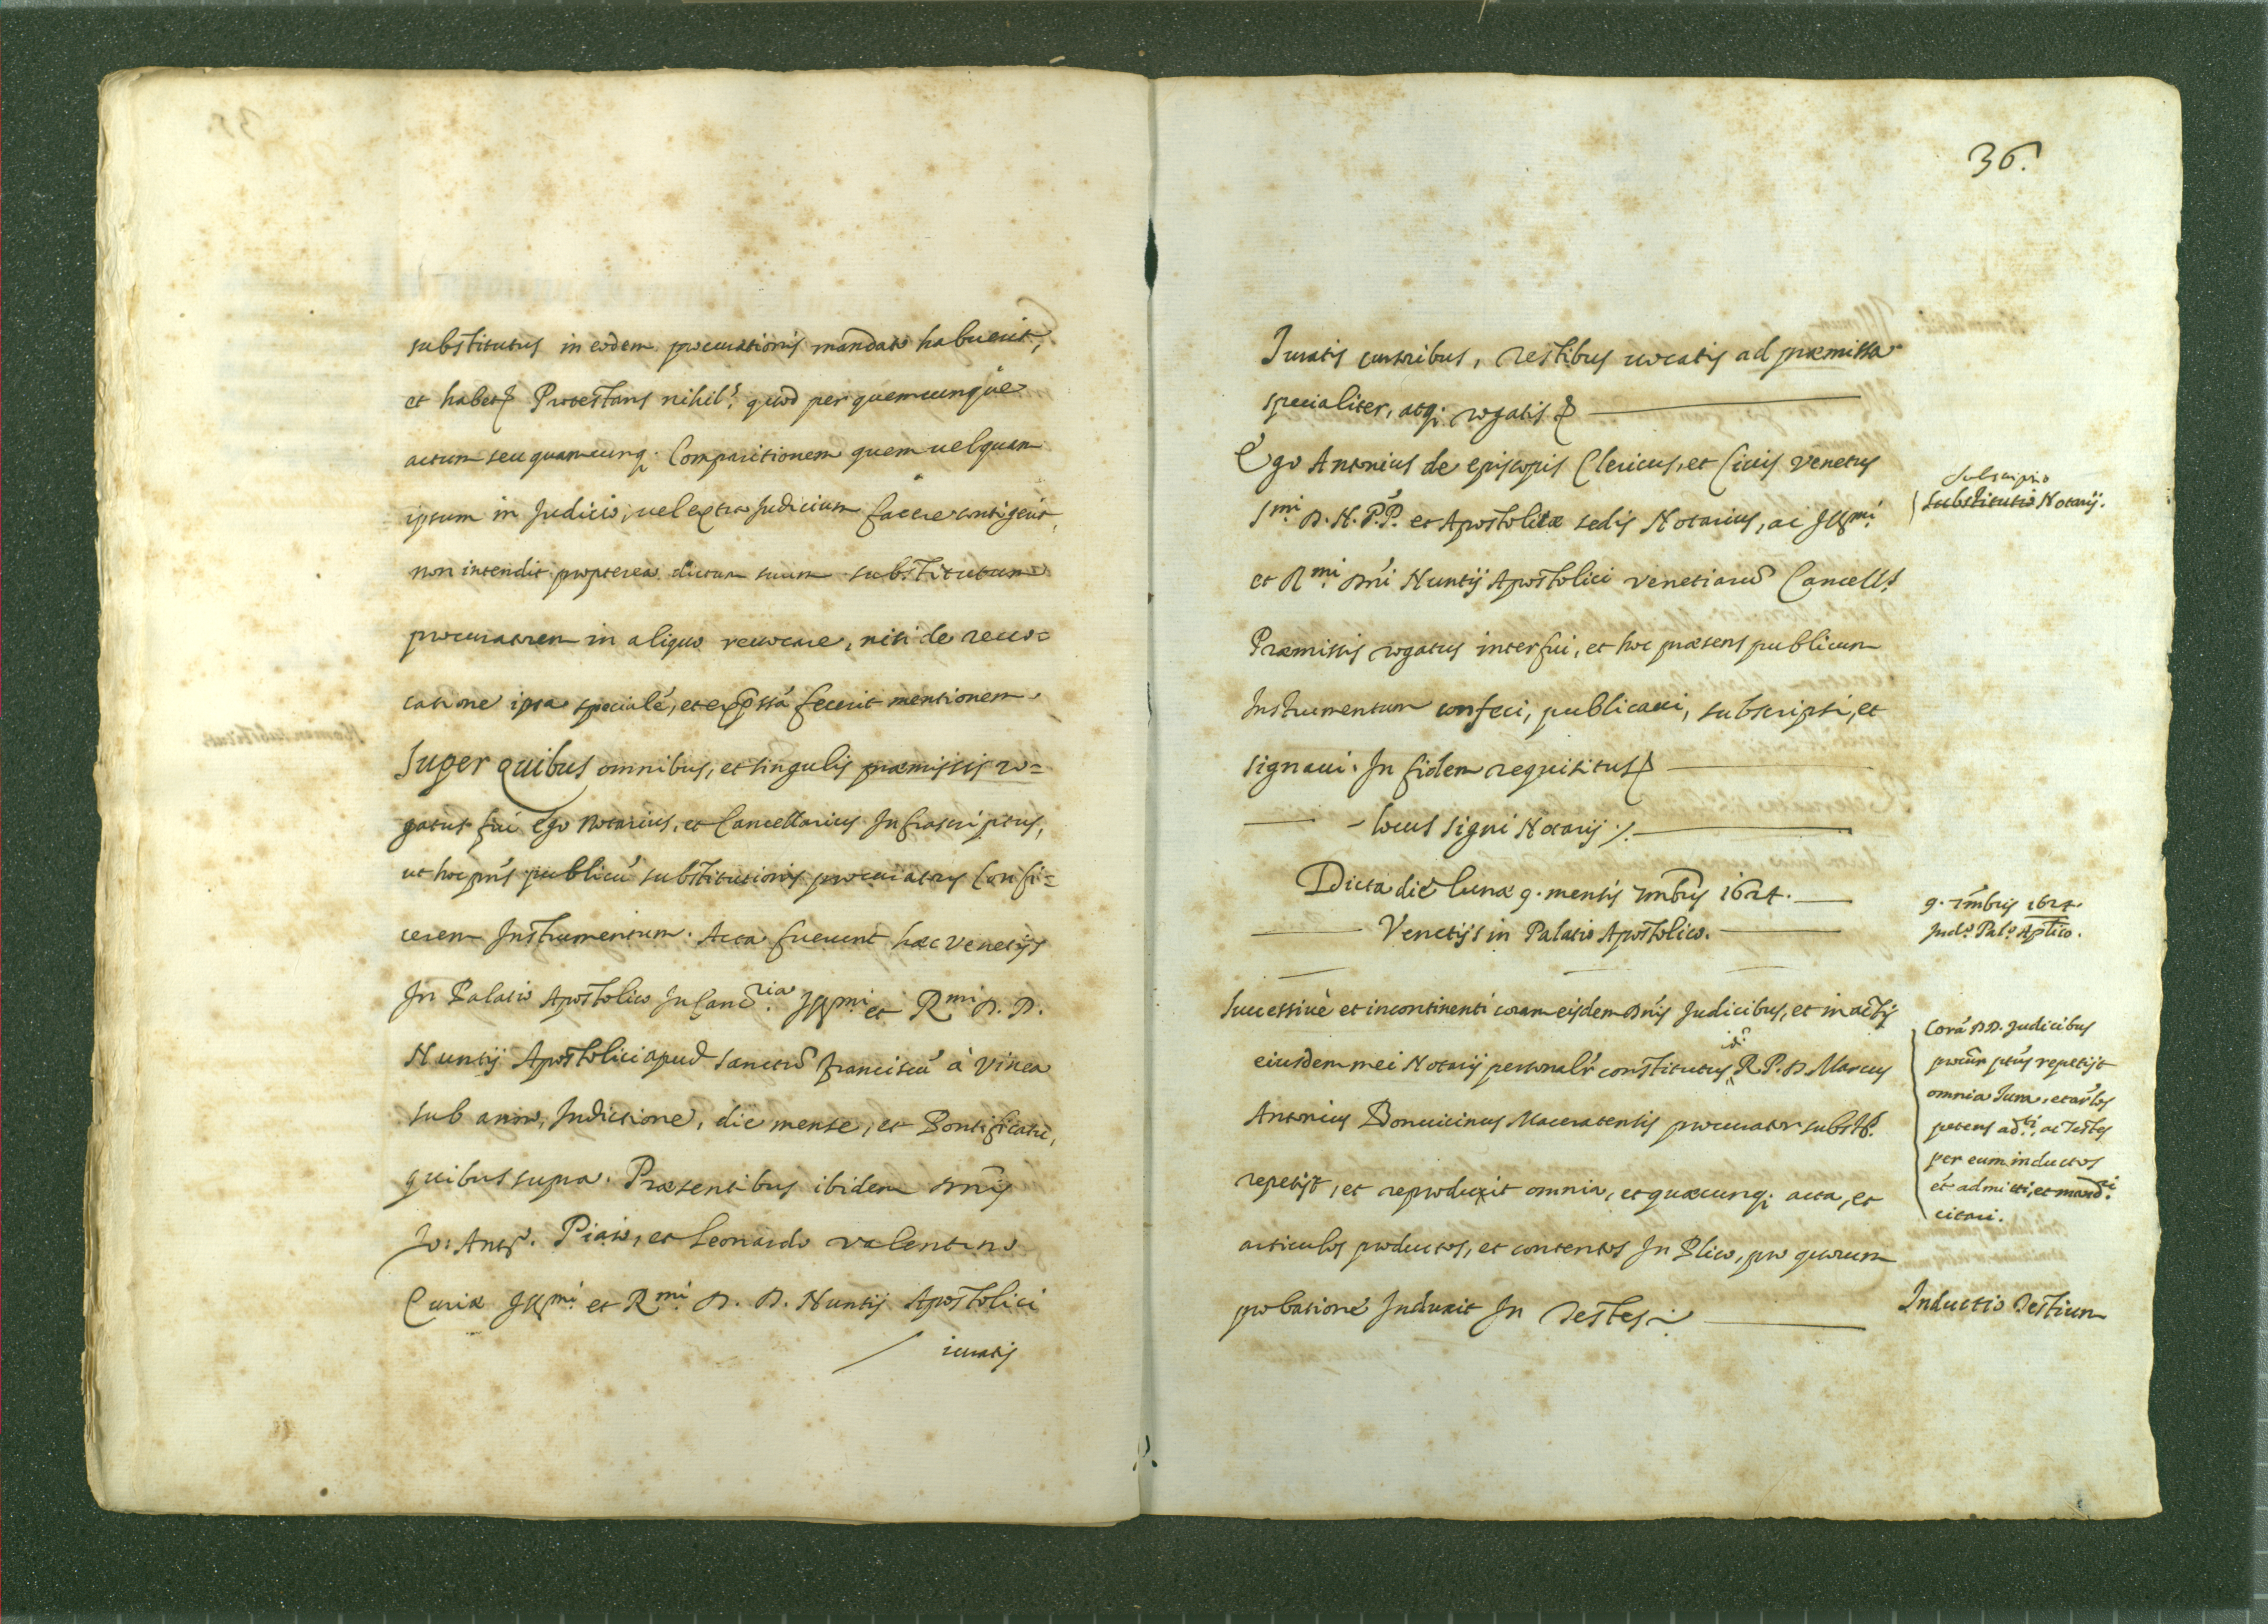 substitutus in eodem procurationis mandato habuerit,
et habet. Protestans nihil: quod per quemcunque
actum seu quamcunq; Comparitionem quem uel quam
ipsum in Judicio, uel extra Judicium facere contigerit,
non intendit propterea dictum suum substitutum
procuratorem in aliquo reuocare, nisi de reuo=
catione ipsa specialé, et exp̃ssá fecerit mentionem.
Super quibus omnibus, et singulis præmissis ro=
gatus fui Ego Notarius, et Cancellarius Infrascriptus,
ut hoc pñs publicú substitutionis procuratoris Confi=
cerem Instrumentum. Acta fuerunt hæc Venetijs
In Palatio Apostolico In Canc̃ria Illmi. et Rmi D. D.
Nuntij Apostolici apud Sanctũ Franciscú à Vinea
sub anno, Indictione, die mense, et Pontificatu,
quibus supra. Præsentibus ibidem Dñis
Jo: Antº. Piato, et Leonardo Valentino
Curiæ Illmi. et Rmi. D. D. Nuntij Apostolici
iuratis
36.
Iuratis cursoribus, Testibus uocatis ad præmissa
specialiter, atq; rogatis
Ego Antonius de Episcopis Clericus, et Ciuis Venetus
Smi. D. N. P.P. et Apostolicæ sedis Notarius, ac Illmi.
et Rmi. Dñi Nuntij Apostolici Venetiarũ Cancells
Præmissis rogatus interfui, et hoc præsens publicum
Instrumentum confeci, publicaui, subscripsi, et
signaui. In fidem requisitus
locus signi Notarij
Subscriptio
Substitutio Notarij.
Dicta die lunæ 9. mensis Xmbris 1624.
Venetijs in Palatio Apostolico.
9. Xmbris 1624.
Judº. Palº. Aplico.
Successiuè et incontinenti coram eisdem Dñis Judicibus, et in actis
eiusdem mei Notarij personalr̃ constitutus idẽ R. P. D. Marcus
Antonius Bonuicinus Maceratensis procurator substs.
repetijt, et reproduxit omnia, et quæcunq; acta, et
articulos productos, et contentos In Plico, pro quorum
probationé Induxit In Testes
Corá DD. Judicibus
procur̃ ptús repetijt
omnia Iura, et arlos
petens adti, ac Testes
per eum inductos
ét admitti, et mandi
citari.
Inductio Testium